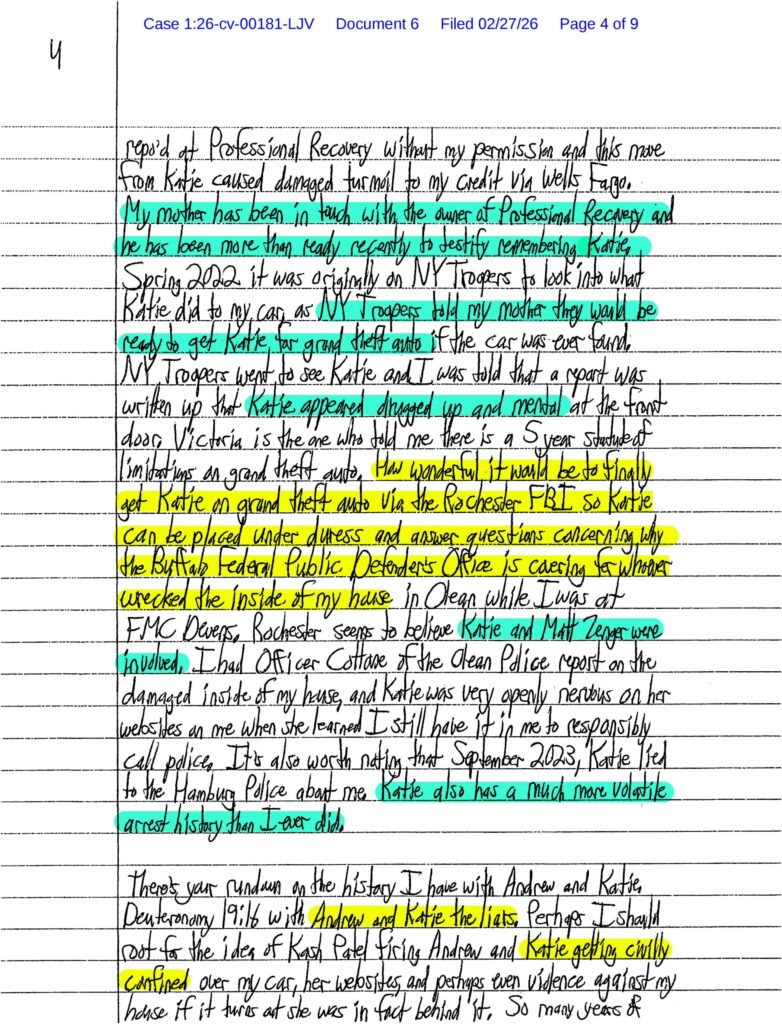 Case 1:26-cv-00181-LJV Document 6 Filed 02/27/26 Page 4 of 9
4
repo'd at Professional Recovery without my permission and this move
from Katie caused damaged turmoil to my credit via Wells Fargo.
My mother has been in touch with the owner of Professional Recovery and
he has been more than ready recently to testify remembering Katie.
Spring 2022 it was originally on NY Troopers to look into what
Katie did to my car, as NY Troopers told my mother they would be
ready to get Katie for grand theft auto if the car was ever found.
NY Troopers went to see Katie and I was told that a report was
written up that Katie appeared drugged up and mental at the front
door. Victoria is the one who told me there is a 5 year statute of
limitations on grand theft auto. How wonderful it would be to finally
get Katie on grand theft auto via the Rochester FBI so Katie
can be placed under duress and answer questions concerning why
the Buffalo Federal Public Defender's Office is covering for whoever
wrecked the inside of my house in Olean while I was at
FMC Devens. Rochester seems to believe Katie and Matt Zenger were
involved. I had Officer Cottone of the Olean Police report on the
damaged inside of my house, and Katie was very openly nervous on her
websites on me when she learned I still have it in me to responsibly
call police. It's also worth noting that September 2023, Katie lied
to the Hamburg Police about me. Katie also has a much more volatile
arrest history than I ever did.
There's your rundown on the history I have with Andrew and Katie.
Deuteronomy 19:16 with Andrew and Katie the liars. Perhaps I should
root for the idea of Kash Patel firing Andrew and Katie getting civilly
confined over my car, her websites, and perhaps even violence against my
house if it turns out she was in fact behind it. So many years of